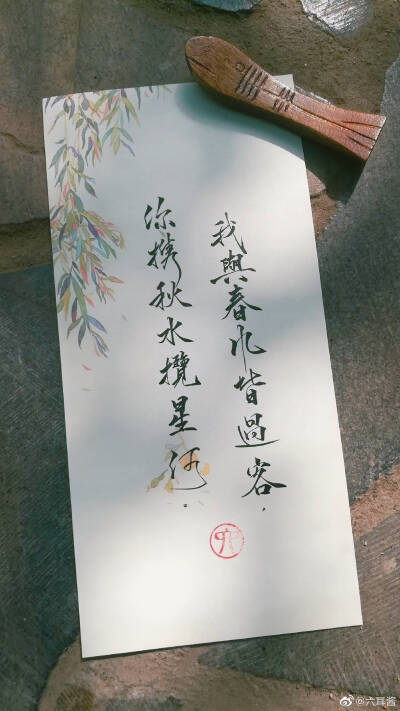 我與春风皆過客，
你携秋水攬星河。
@六耳酱